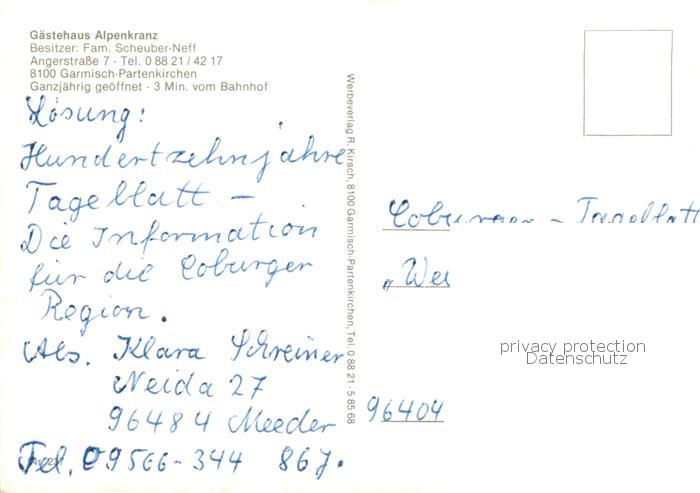 Gästehaus Alpenkranz
Besitzer: Fam. Scheuber-Neff
Angerstraße 7 - Tel. 0 88 21 / 42 17
8100 Garmisch-Partenkirchen
Ganzjährig geöffnet - 3 Min. vom Bahnhof
Lösung:
Hundertzehnjahre
Tageblatt –
Die Information
für die Coburger
Region.
Abs. Klara Schreiner
Neida 27
96484 Meeder
Tel. 09566-344 867.
Werbeverlag R. Kirsch, 8100 Garmisch-Partenkirchen, Tel. 0 88 21 - 5 85 68
„Wei
96404
privacy protection
Datenschutz